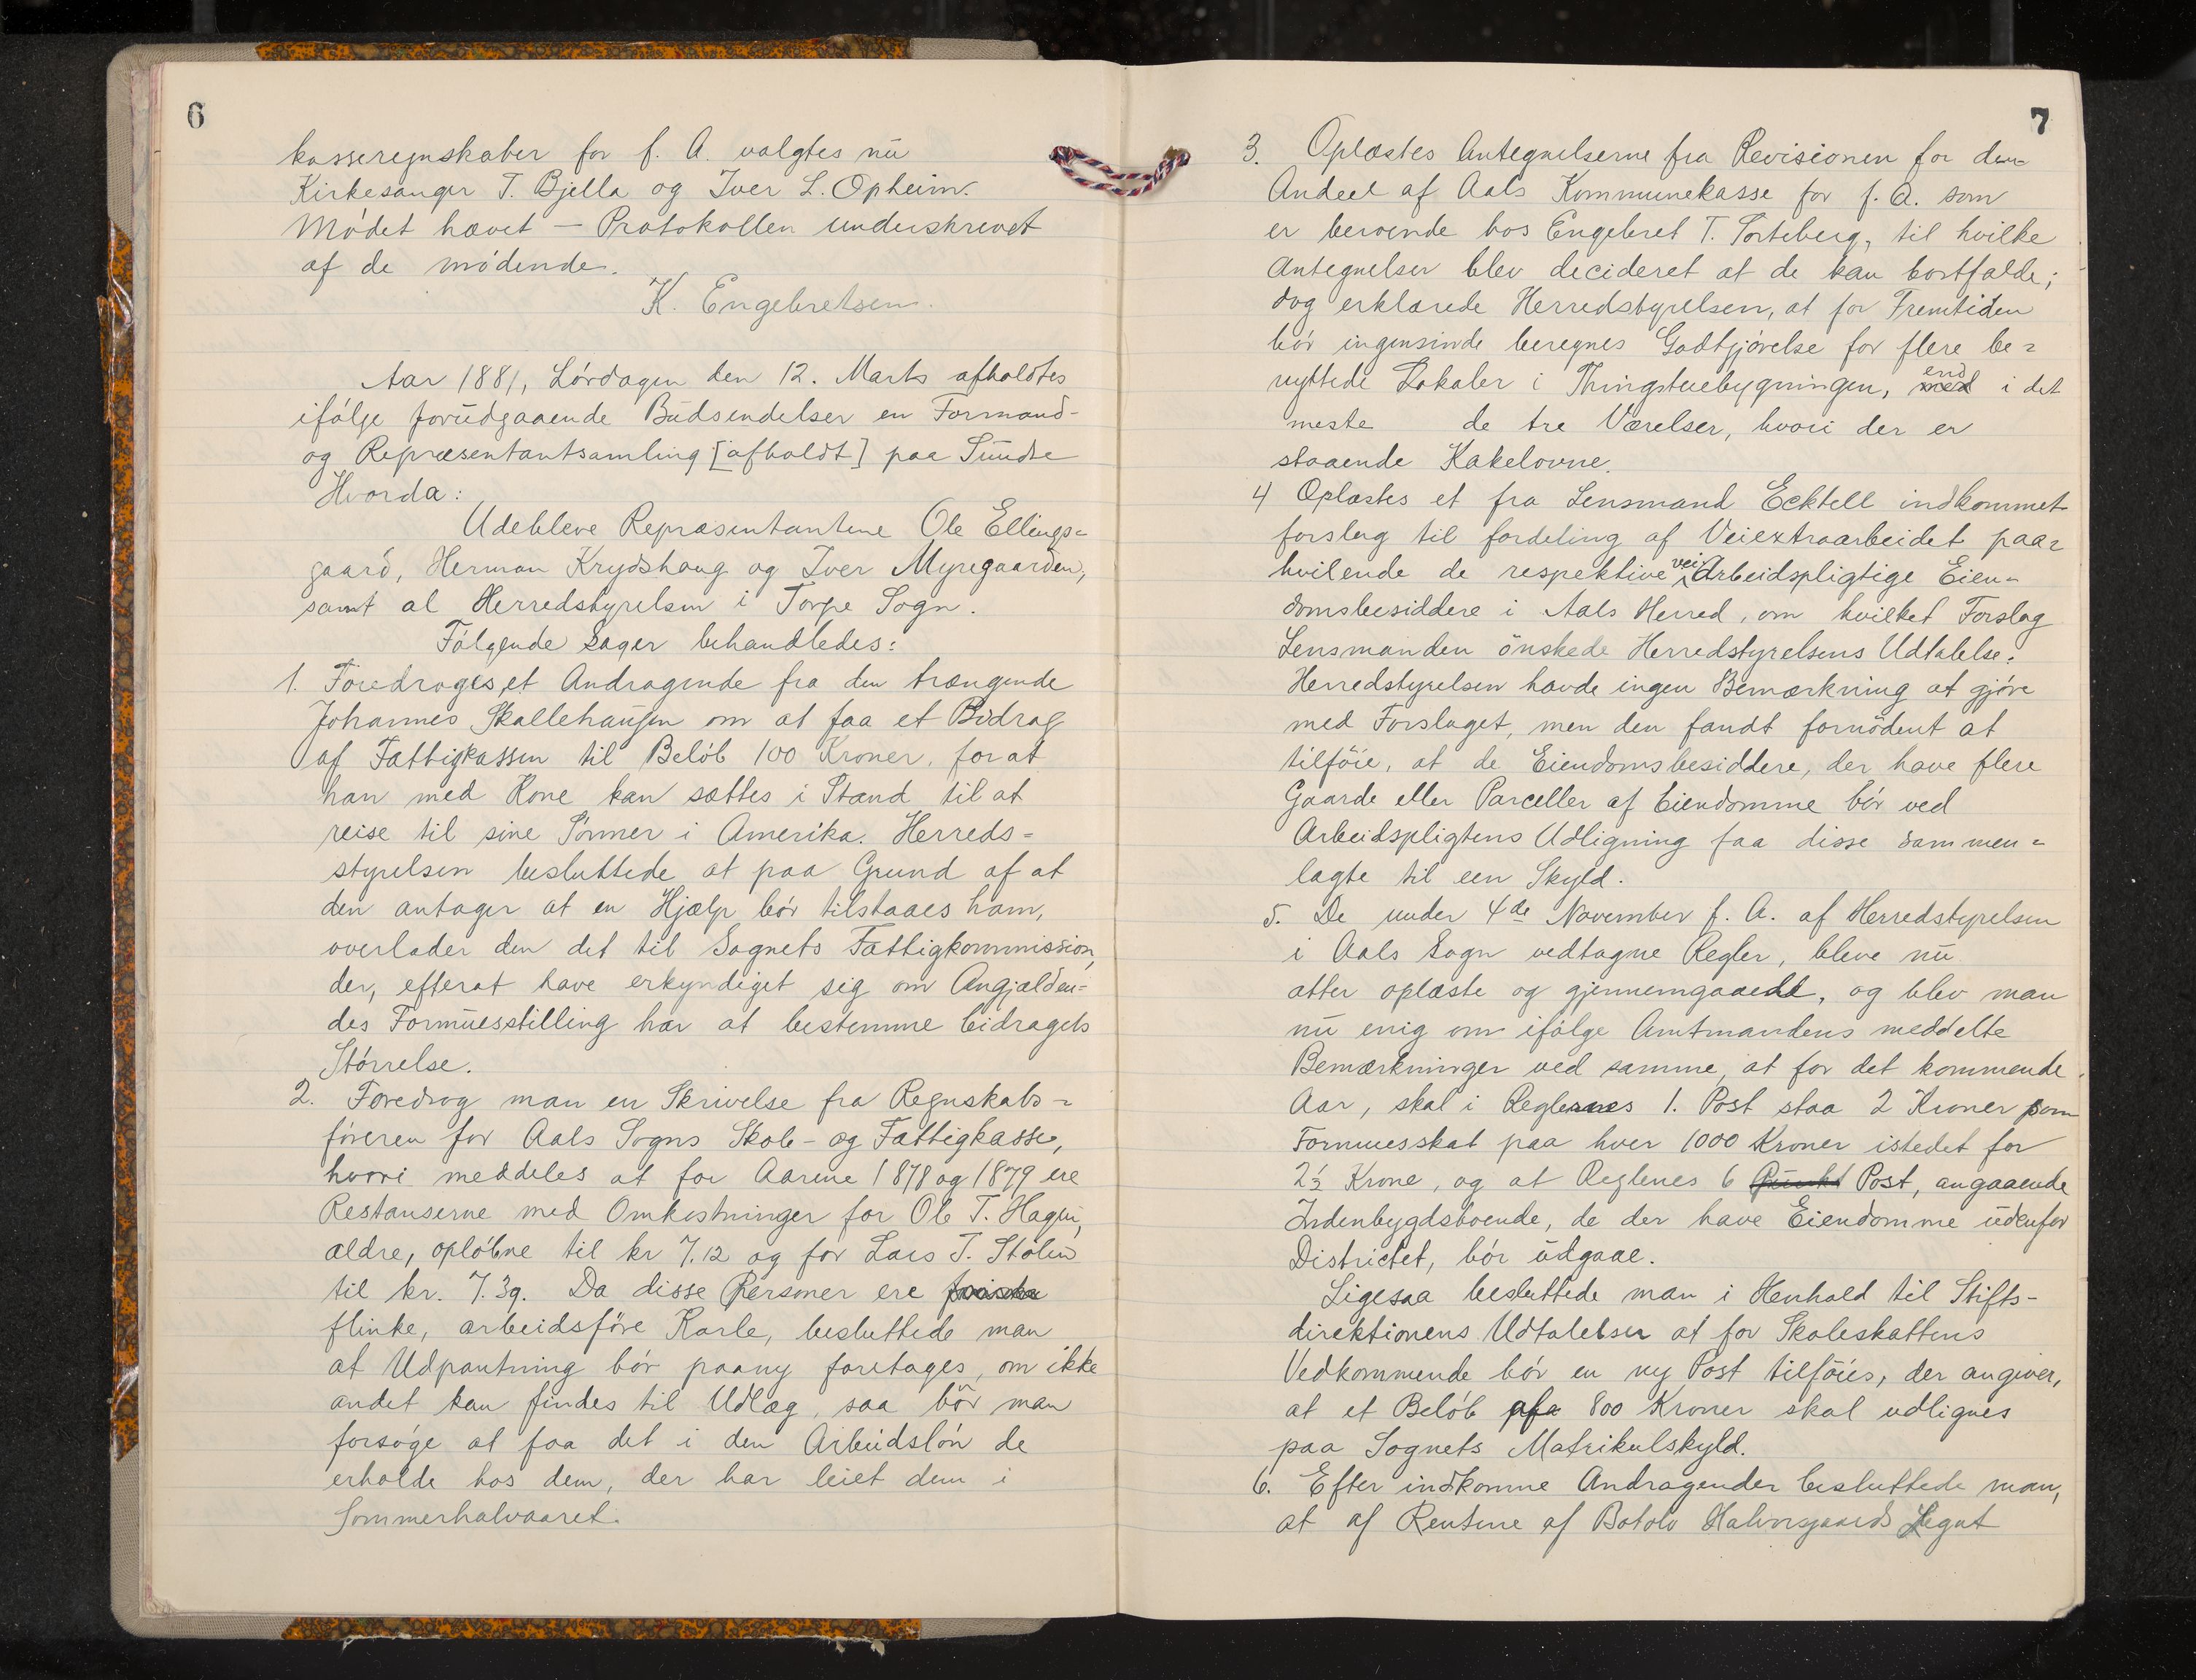 6
kasseregnskaber for f. A. valgtes nu
Kirkesanger T. Bjella og Iver L. Opheim.
Mødet hævet — Protokollen underskrevet
af de mødende.
K. Engebretsen.
Aar 1881, Lørdagen den 12. Marts afholdtes
ifølge forudgaaende Budsendelser en Formand-
og Repræsentantsamling [afholdt] paa Sundre
Hvorda:
Udebleve Repræsentantene Ole Ellings=
gaard, Herman Krydshaug og Iver Myregaarden,
samt al Herredstyrelsen i Torpe Sogn.
Følgende Sager behandledes:
1. Foredroges et Andragende fra den trængende
Johannes Skallehaugen om at faa et Bidrag
af Fattigkassen til Beløb 100 Kroner, for at
han med Kone kan sættes i Stand til at
reise til sine Sønner i Amerika. Herreds=
styrelsen besluttede at paa Grund af at
den antager at en Hjælp bør tilstaaes ham,
overlader den det til Sognets Fattigkommission,
der, efterat have erkyndiget sig om Angjælden=
des Formuesstilling har at bestemme bidragets
Størrelse.
2. Foredrog man en Skrivelse fra Regnskabs=
føreren for Aals Sogns Skole- og Fattigkasse,
hvori meddeles at for Aarene 1878 og 1879 ere
Restanserne med Omkostninger for Ole T. Hagen,
ældre, opløbne til kr 7.12 og for Lars T. Stølen
til kr. 7.39. Da disse Personer ere
flinke, arbeidsføre Karle, besluttede man
at Udpantning bør paany foretages, om ikke
andet kan findes til Udlæg, saa bør man
forsøge at faa det i den Arbeidsløn de
erholde hos dem, der har leiet dem i
Sommerhalvaaret.
7
3. Oplæstes Antegnelserne fra Revisionen for den
Andeel af Aals Kommunekasse for f. A. som
er beroende hos Engebret T. Torteberg, til hvilke
Antegnelser blev decideret at de kan bortfalde;
dog erklærede Herredstyrelsen, at for Fremtiden
bør ingensinde beregnes Godtgjørelse for flere be=
nyttede Lokaler i Thingstuebygningen, med end i det
meste de tre Værelser, hvori der er
staaende Kakelovne.
4 Oplæstes et fra Lensmand Ecktell indkommet
forslag til fordeling af Veiextraarbeidet paa=
hvilende de respektive vei Arbeidspligtige Eien=
domsbesiddere i Aals Herred, om hvilket Forslag
Lensmanden ønskede Herredstyrelsens Udtalelse.
Herredstyrelsen havde ingen Bemærkning at gjøre
med Forslaget, men den fandt fornødent at
tilføie, at de Eiendomsbesiddere, der have flere
Gaarde eller Parceller af Eiendomme bør ved
Arbeidspligtens Udligning faa disse sammen=
lagte til een Skyld.
5. De under 4de November f. A. af Herredstyrelsen
i Aals Sogn vedtagne Regler, bleve nu
atter oplæste og gjennemgaaede, og blev man
nu enig om ifølge Amtmandens meddelte
Bemærkninger ved samme, at for det kommende
Aar, skal i Reglernes 1. Post staa 2 Kroner som
Formuesskat paa hver 1000 Kroner istedet for
2½ Krone, og at Reglenes 6 Punkt Post, angaaende
Indenbygdsboende, de der have Eiendomme udenfor
Districtet, bør udgaae.
Ligesaa besluttede man i Henhold til Stifts-
direktionens Udtalelser at for Skoleskattens
Vedkommende bør en ny Post tilføies, der angiver,
at et Beløb af 800 Kroner skal udlignes
paa Sognets Matrikulskyld.
6. Efter indkomne Andragender besluttede man,
at af Rentene af Botolv Halvorsgaards Legat